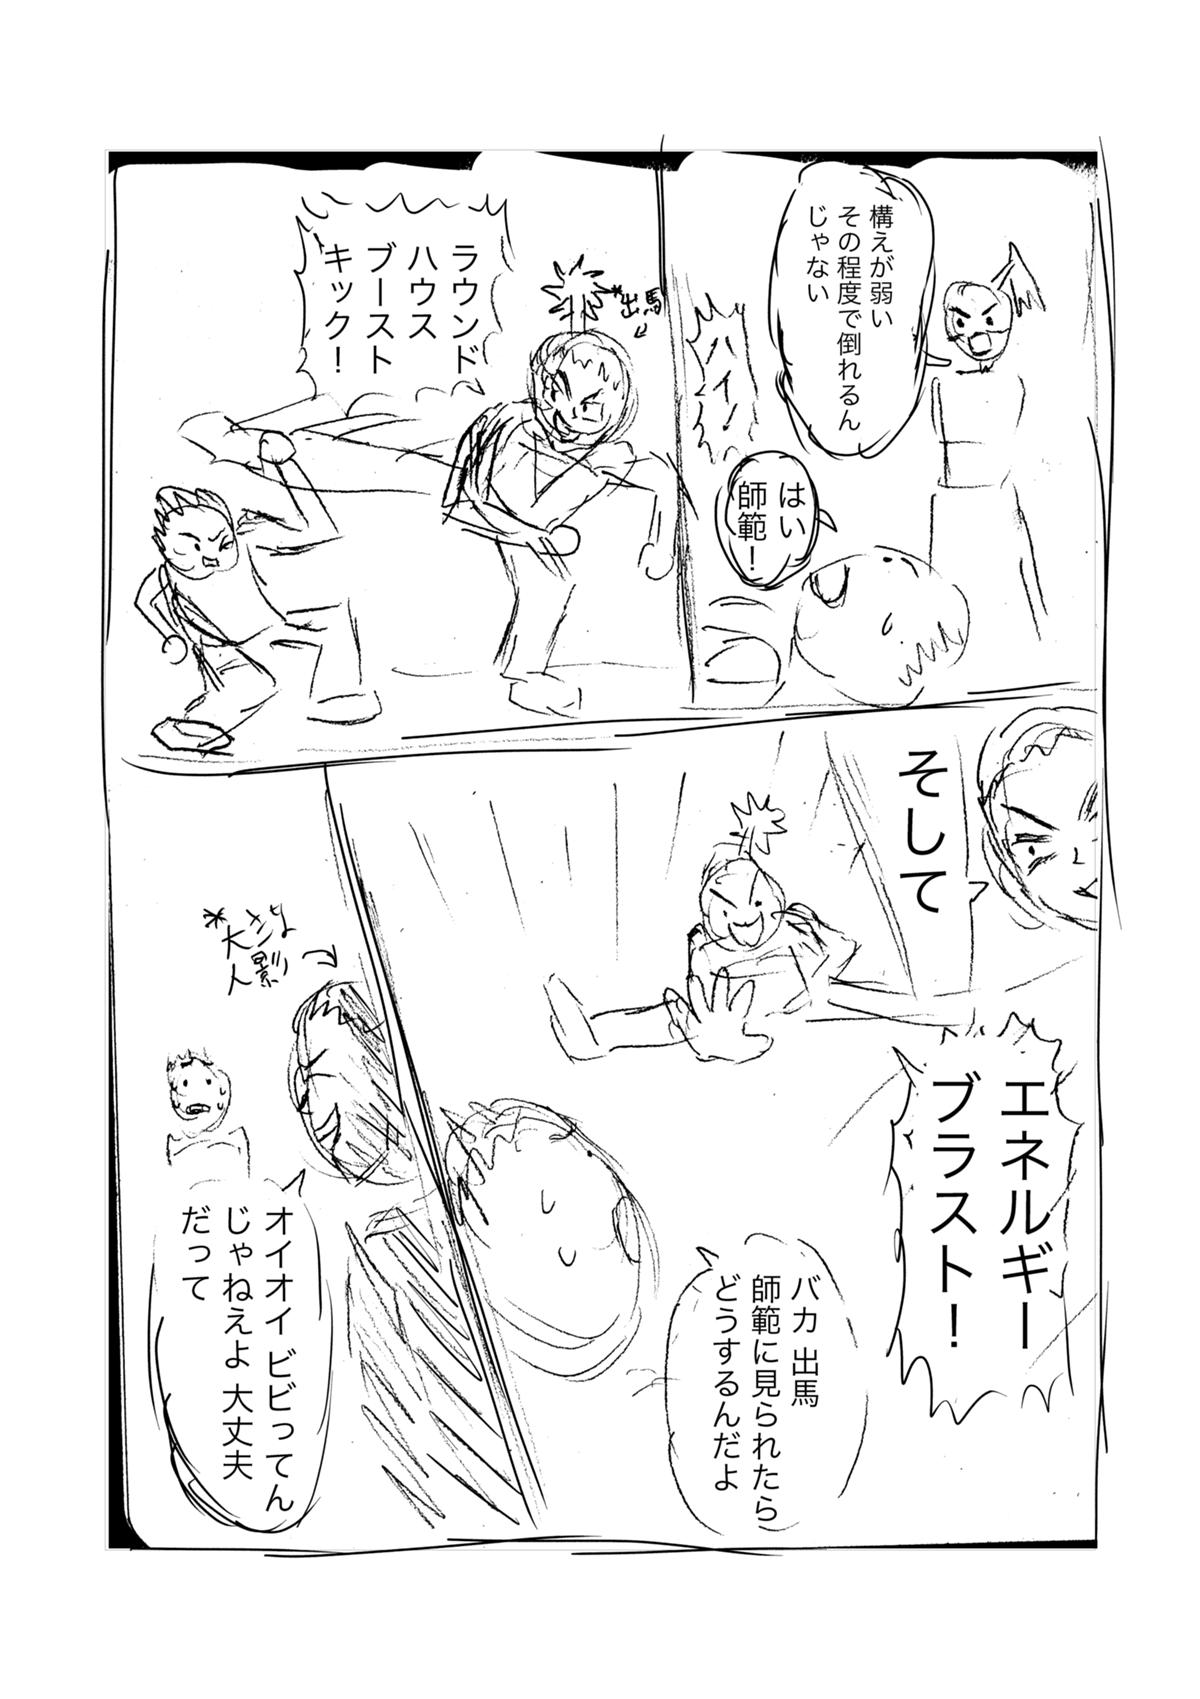 構えが弱い
その程度で倒れるん
じゃない
ハイ!
はい
師範!
ラウンド
ハウス
ブースト
キック!
*出馬
そして
エネルギー
ブラスト!
バカ 出馬
師範に見られたら
どうするんだよ
*大きな
人影
オイオイ ビビってん
じゃねえよ 大丈夫
だって